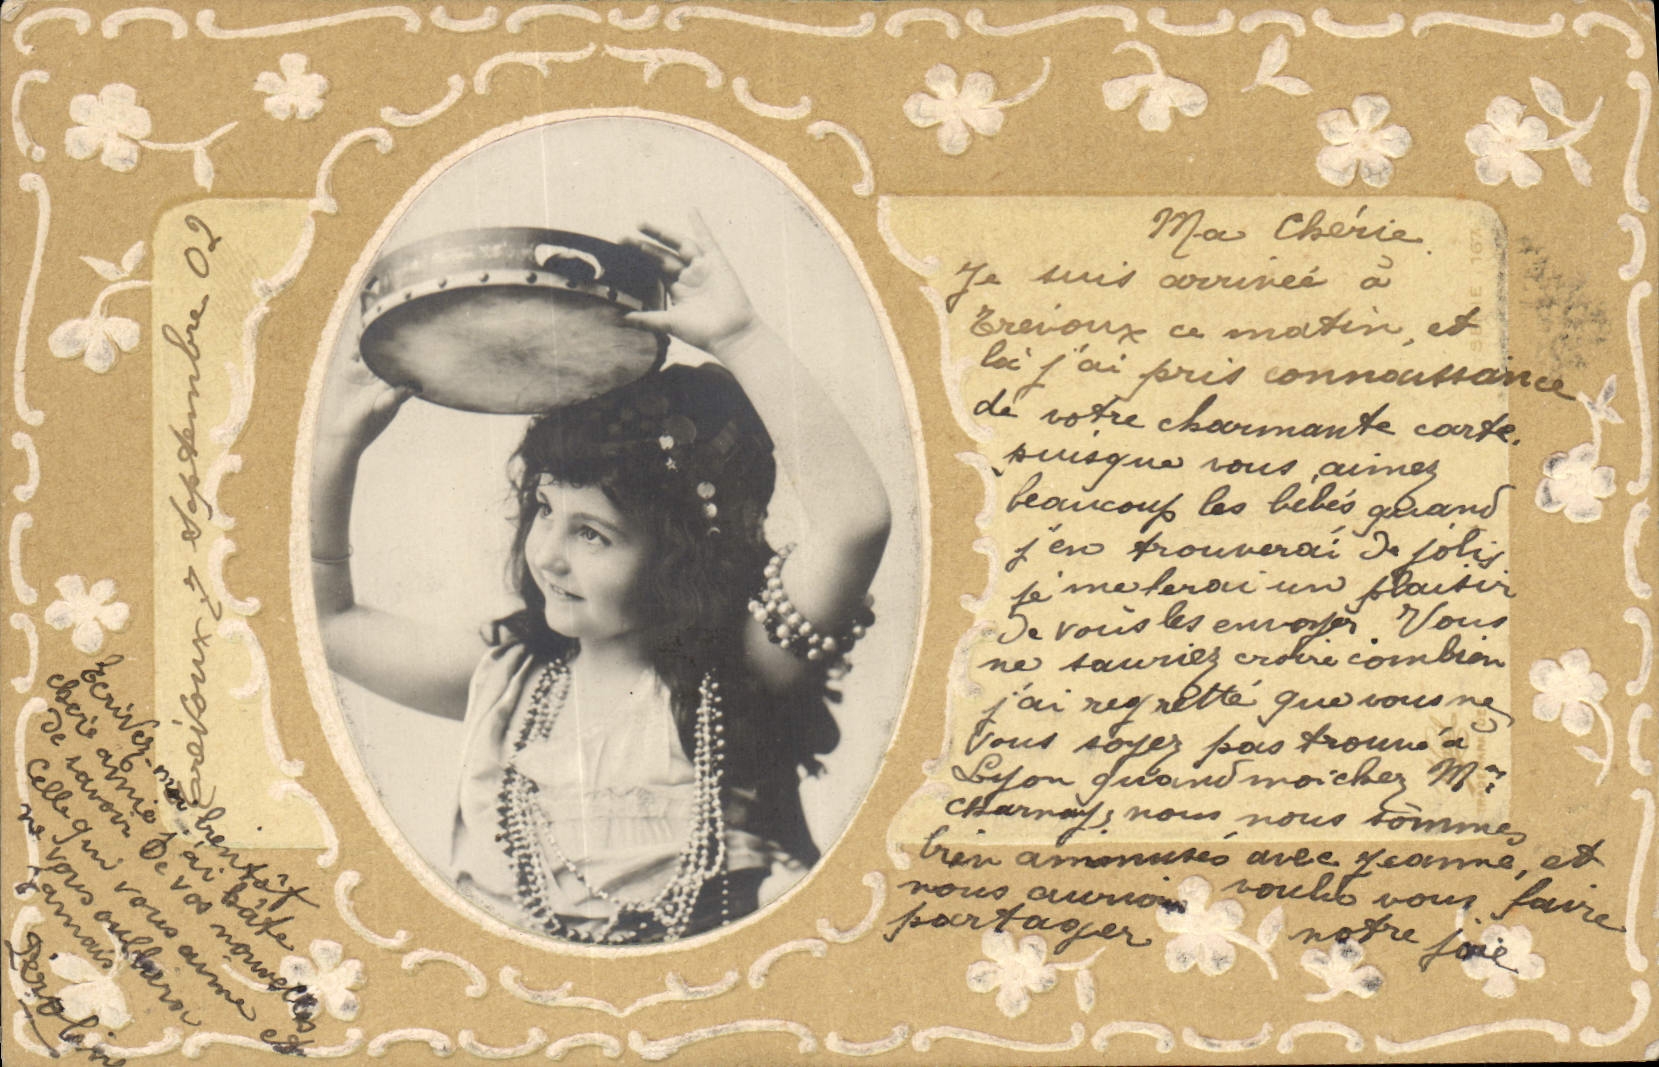 Ma Chérie
Je suis arrivée à
Trevoux ce matin, et
là j'ai pris connaissance
de votre charmante carte.
puisque vous aimez
beaucoup les bébés quand
j'en trouverai de jolis
je me ferai un plaisir
de vous les envoyer Vous
ne sauriez croire combien
j'ai regretté que vous ne
vous soyez pas trouvé à
Lyon quand moi chez Mr
Charnay, nous nous sommes
bien ammusés avec Jeanne, et
nous aurions voulu vous faire
partager notre joie
Trévoux 7 Septembre 02
Ecrivez-moi bientôt
chère amie j'ai hâte
de savoir de vos nouvelles
Celle qui vous aime et
ne vous oubliera
jamais